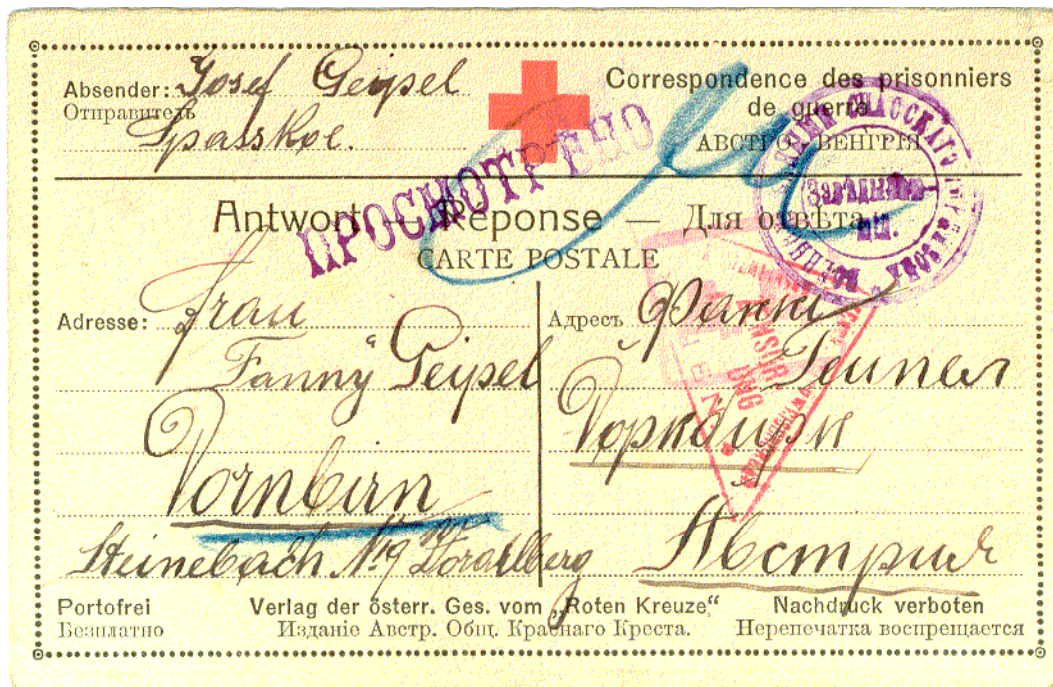 Absender: Josef Geipel
Отправитель
Spasskoe.
Correspondence des prisonniers
de guerre
АВСТРО-ВЕНГРІЯ
ПРОСМОТРЕНО
Antwort — Réponse — Для отвѣта
CARTE POSTALE
Adresse: Frau
Fanny Geipel
Dornbirn
Steinebach No 9 Vorarlberg
Адресъ Фанни
Геипел
Австрия
Portofrei
Безплатно
Verlag der österr. Ges. vom „Roten Kreuze“
Изданіе Австр. Общ. Краснаго Креста.
Nachdruck verboten
Перепечатка воспрещается